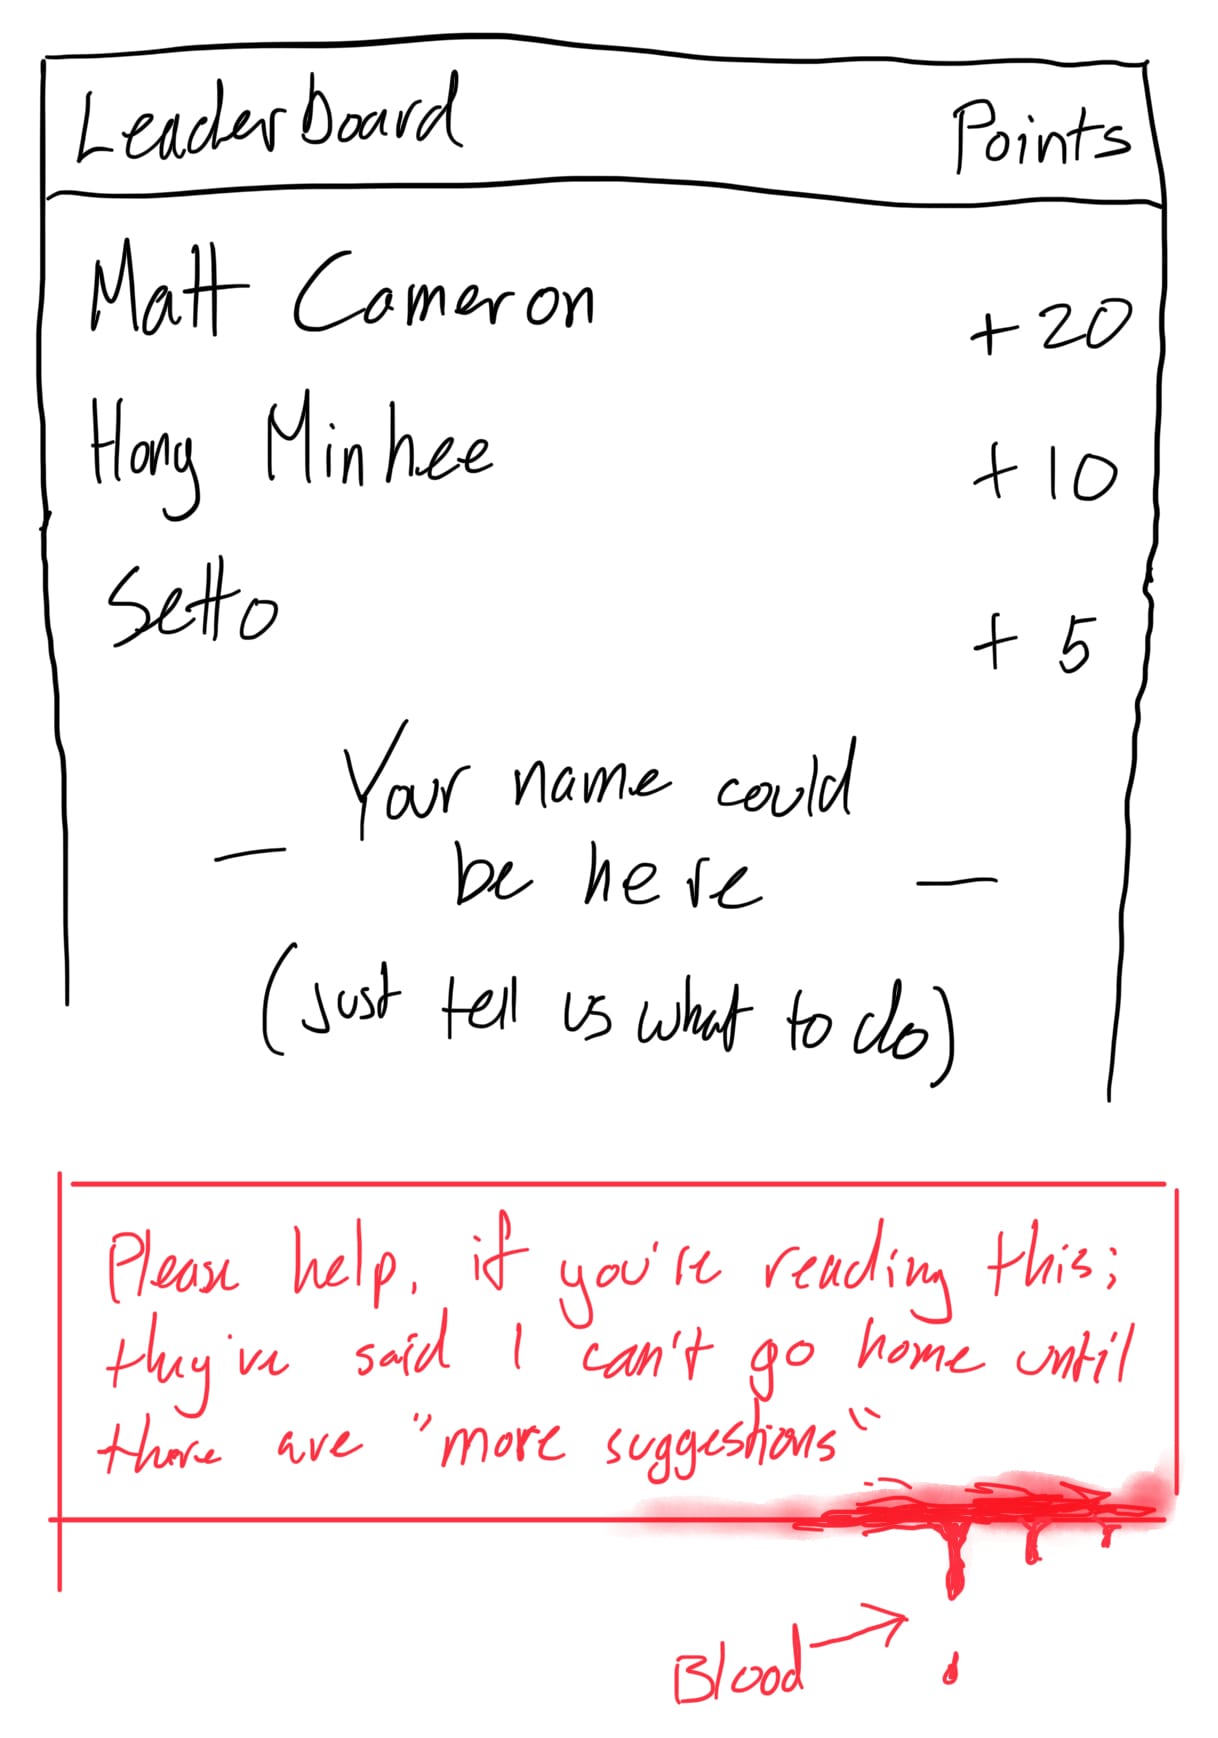 Leaderboard Points
Matt Cameron +20
Hong Minhee +10
Setto +5
Your name could
— be here —
(just tell us what to do)
Please help, if you're reading this;
they've said I can't go home until
there are "more suggestions"
Blood